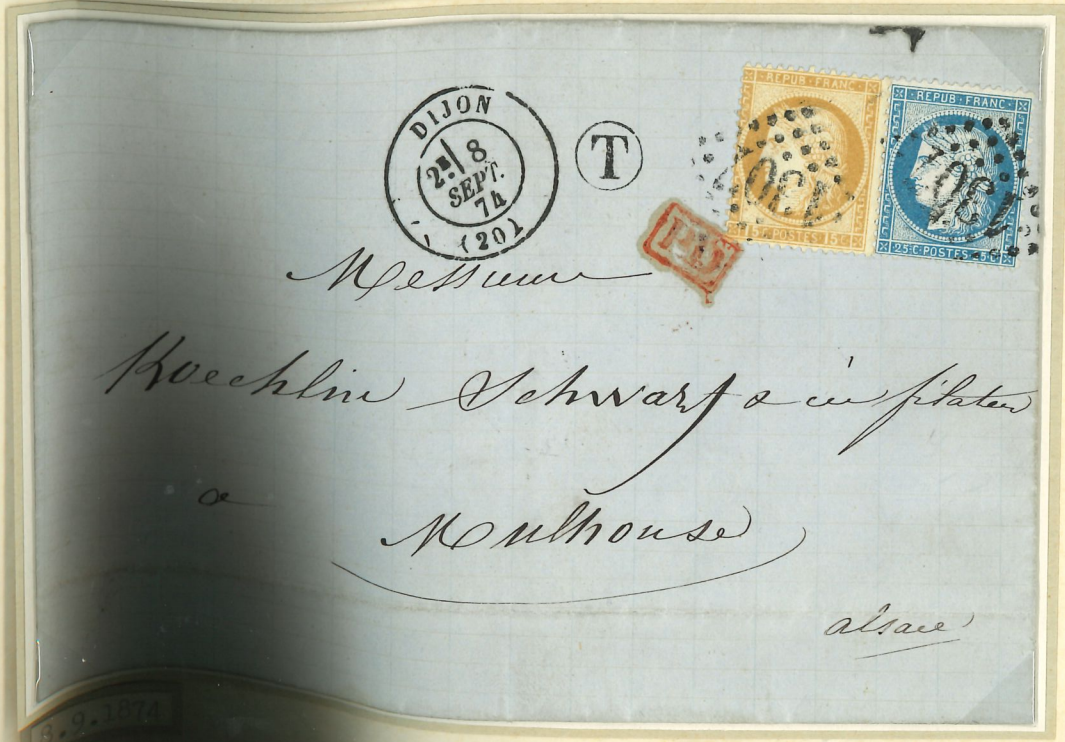 DIJON
2E/ 8
SEPT.
74
(20)
T
REPUB·FRANC·
15 C·POSTES·15 C
·REPUB·FRANC·
25 C·POSTES·25 C
1307
1307
P.D.
Messieurs
Koechlin Schwartz & cie filateur
a
Mulhouse
alsace
8.9.1874